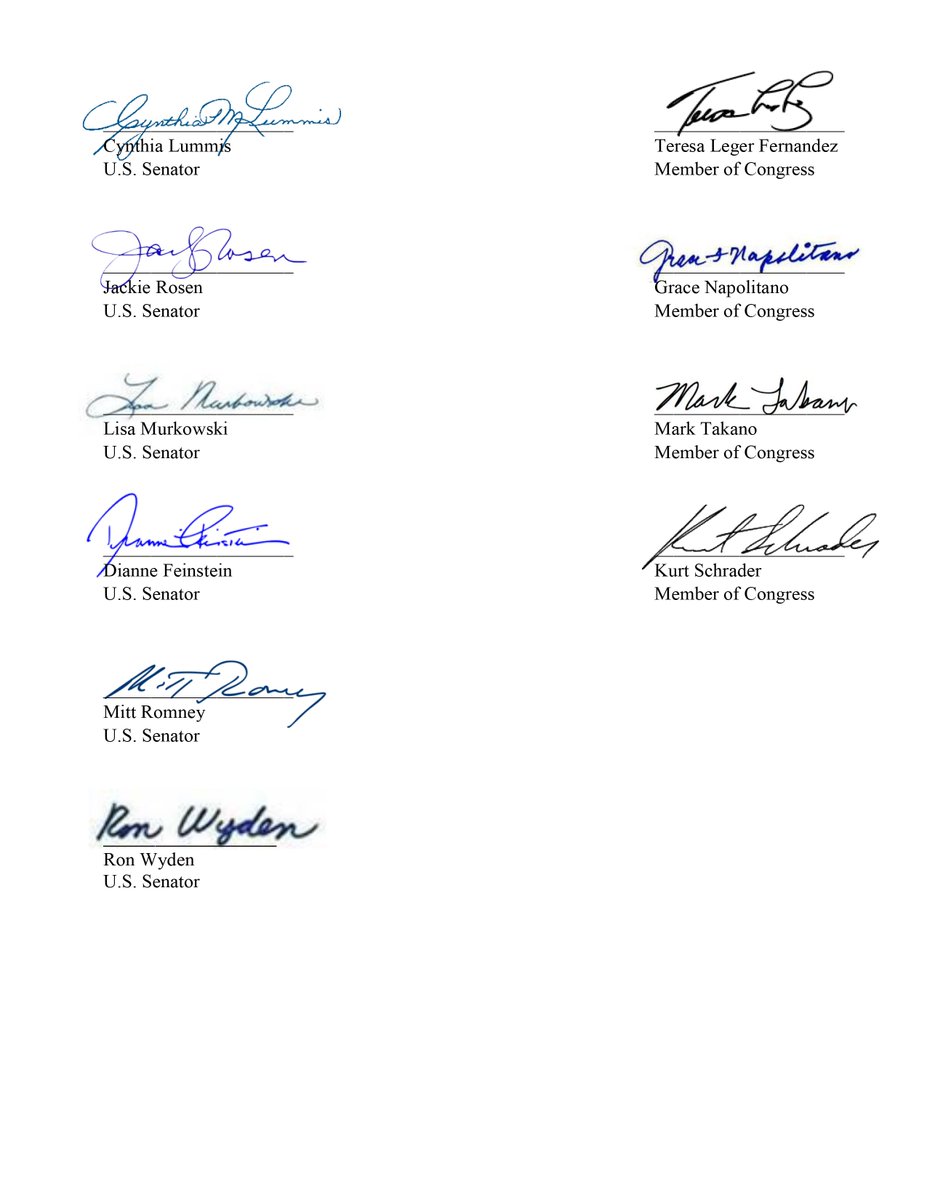 Cynthia M Lummis
Cynthia Lummis
U.S. Senator
Teresa Leger Fernandez
Member of Congress
Rosen
Jackie Rosen
U.S. Senator
Napolitano
Grace Napolitano
Member of Congress
Lisa Murkowski
Lisa Murkowski
U.S. Senator
Mark Takano
Mark Takano
Member of Congress
Dianne Feinstein
U.S. Senator
Kurt Schrader
Kurt Schrader
Member of Congress
Mitt Romney
Mitt Romney
U.S. Senator
Ron Wyden
Ron Wyden
U.S. Senator